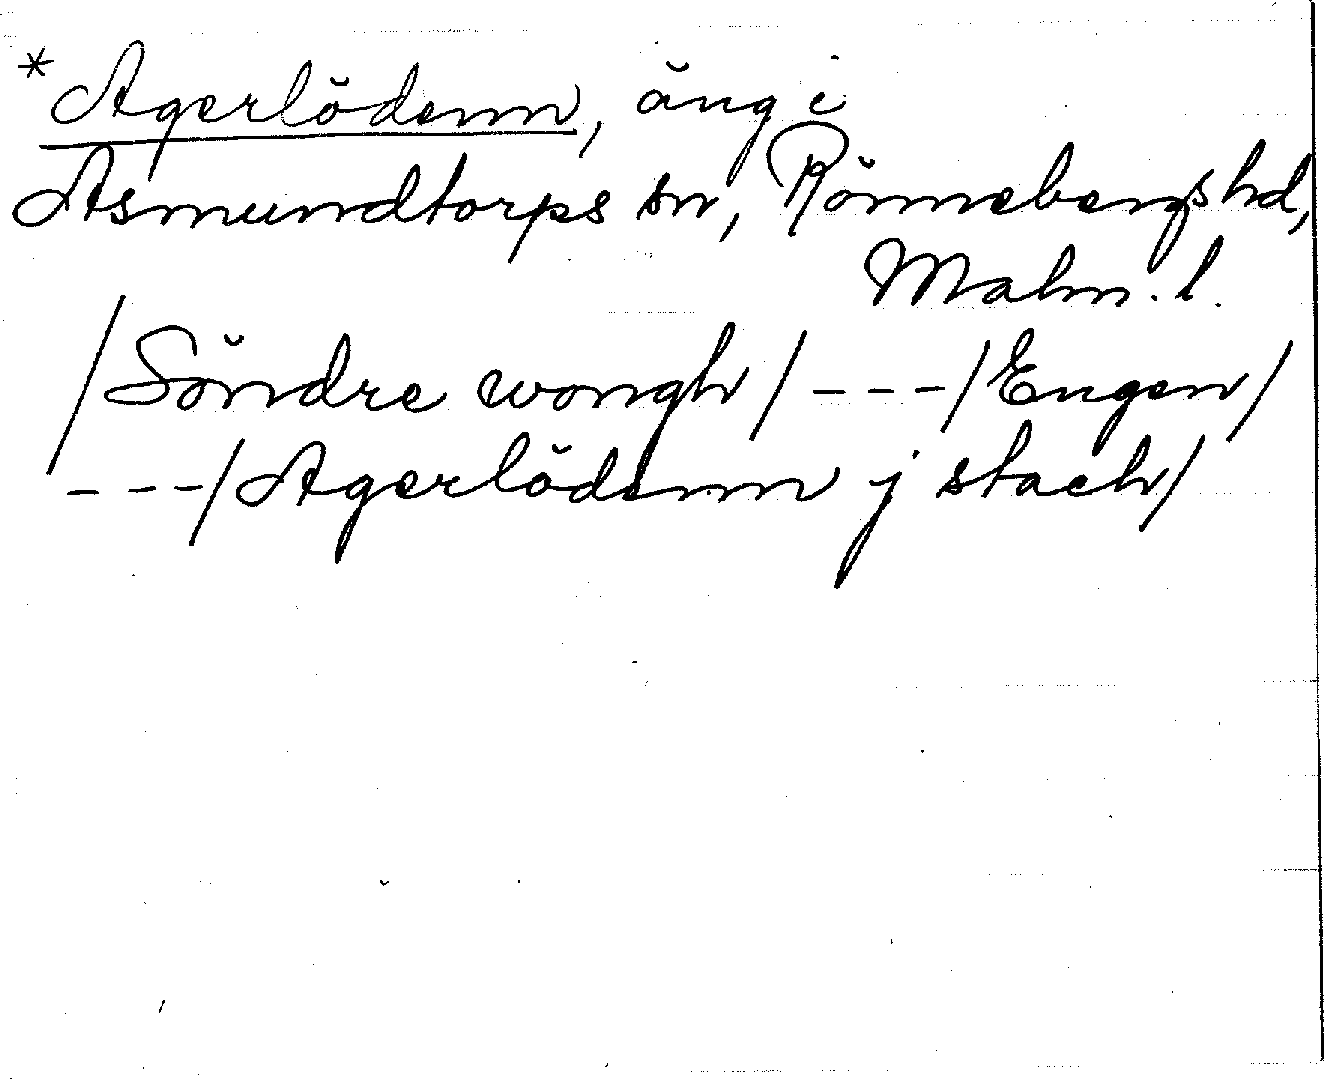 *Agerlödenn, äng i
Asmundtorps sn, Rönnebergs hd,
Malm. l.
/Söndre wongh/ ---/Engen/
---/Agerlödenn j stach/